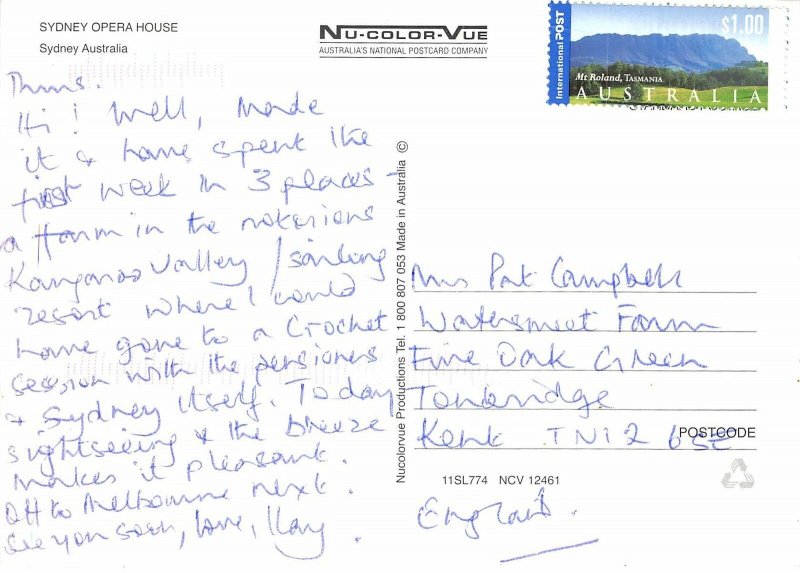 SYDNEY OPERA HOUSE
Sydney Australia
NU-COLOR-VUE
AUSTRALIA'S NATIONAL POSTCARD COMPANY
International POST
$1.00
Mt Roland, TASMANIA
AUSTRALIA
Thurs.
Hi! Well, Made
it & have spent the
first week in 3 places -
a farm in the notorious
Kangaroo Valley / sailing
resort where I could
have gone to a Crochet
session with the pensioners
& Sydney itself. Today
sightseeing & the breeze
makes it pleasant.
Off to Melbourne next.
See you soon, love,
Nucolorvue Productions Tel. 1 800 807 053 Made in Australia ©
Mrs Pat Campbell
Watersmeet Farm
Five Oak Green
Tonbridge
Kent TN12 6SE
POSTCODE
11SL774 NCV 12461
England.